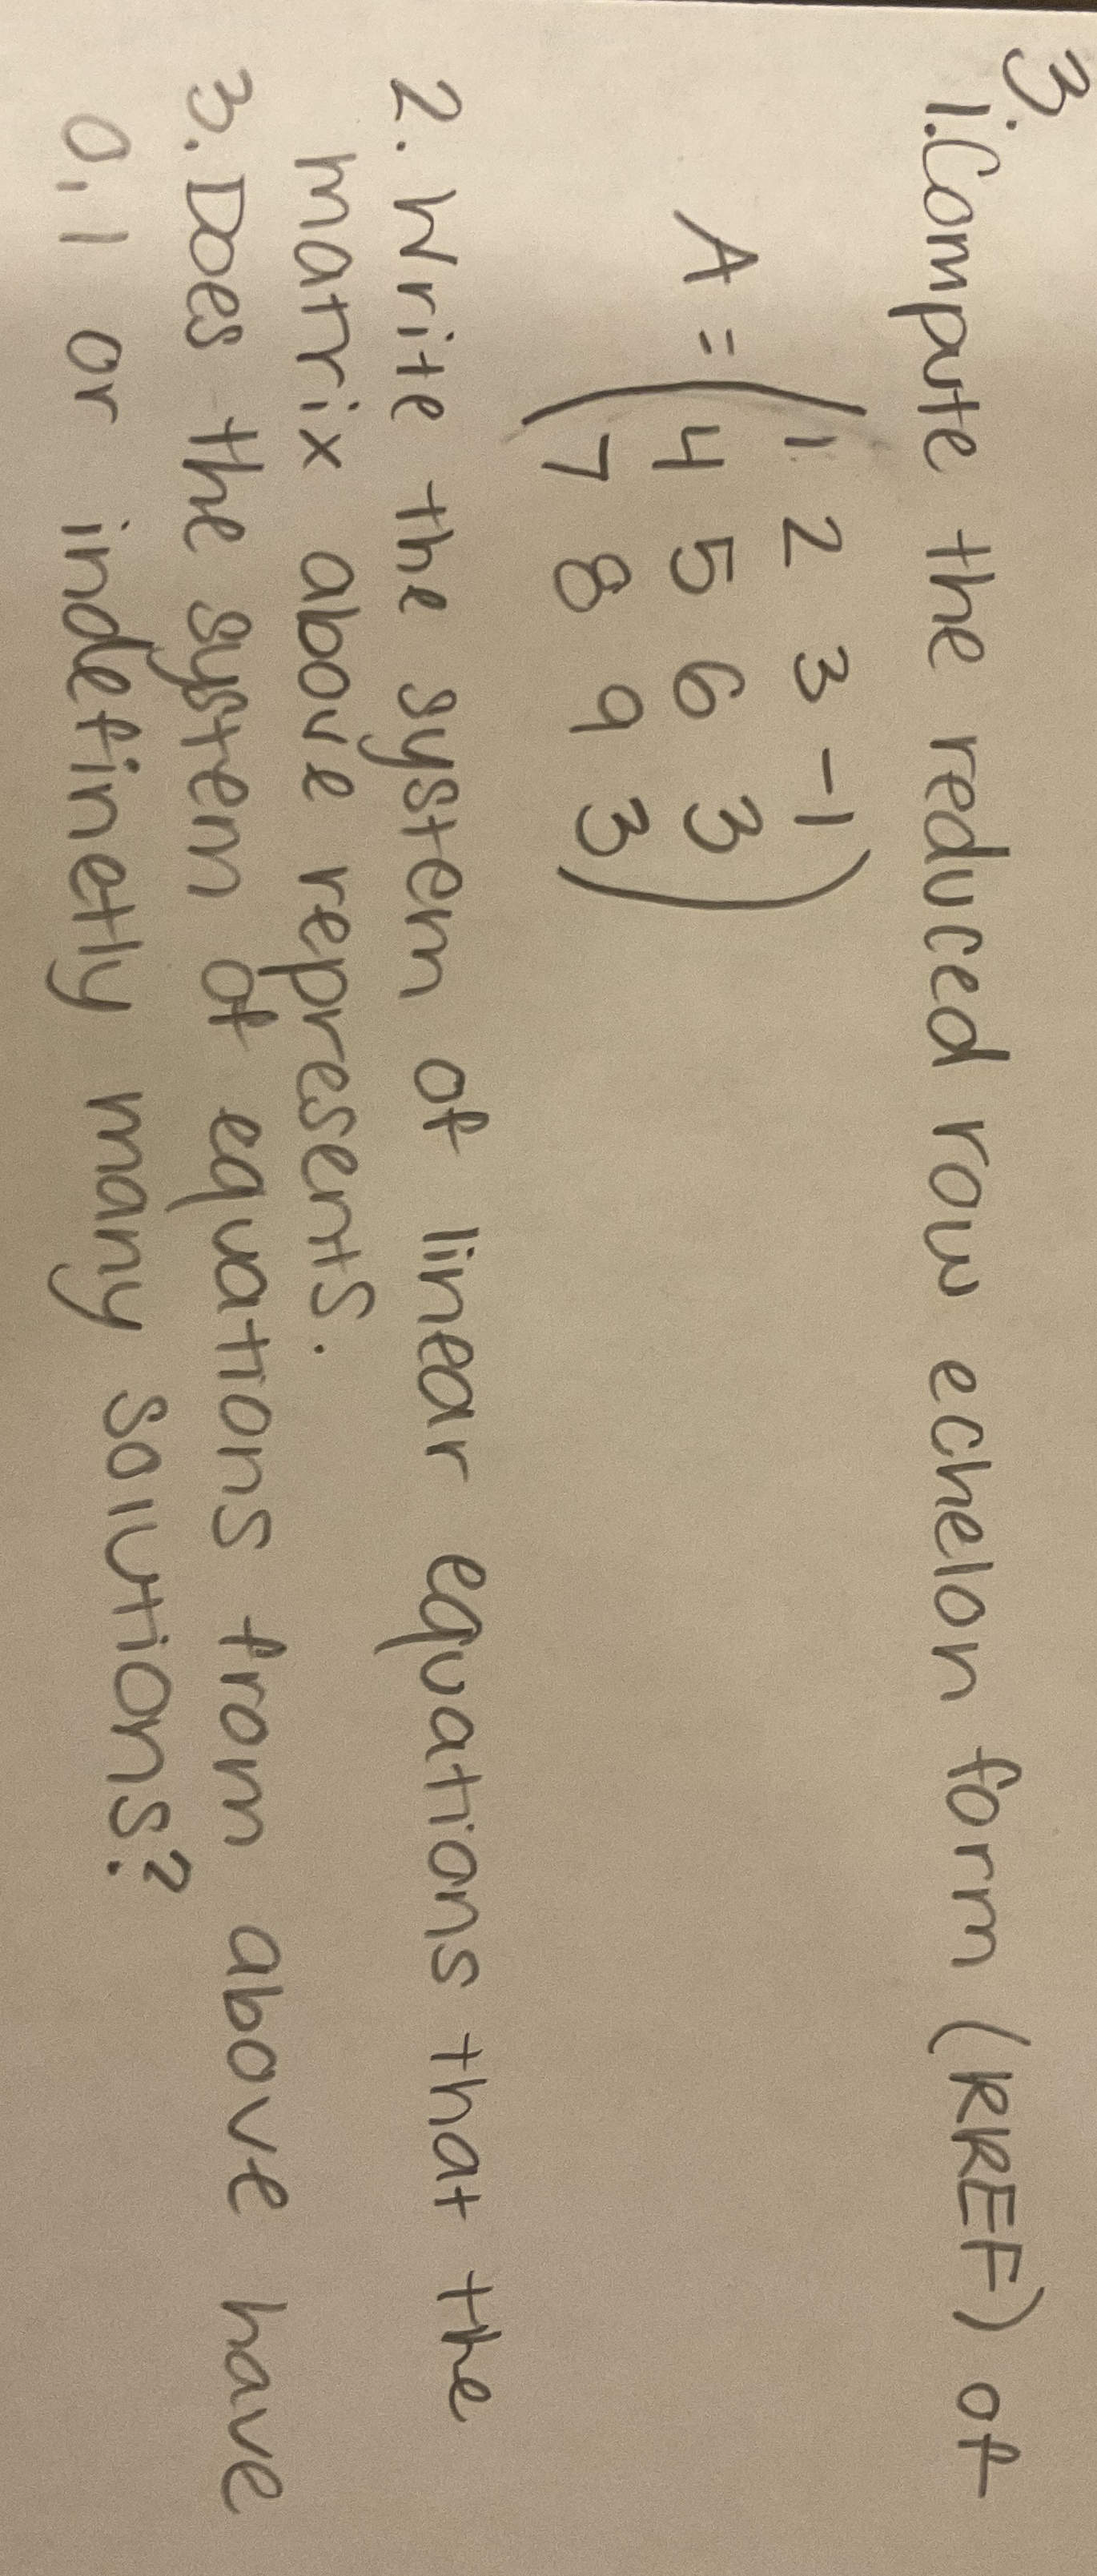 3.
1. Compute the reduced row echelon form (RREF) of
A = ( 1 2 3 -1
4 5 6 3
7 8 9 3 )
2. Write the system of linear equations that the
matrix above represents.
3. Does the system of equations from above have
0, 1 or indefinetly many solutions?